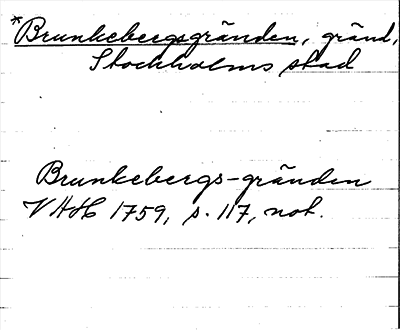 *Brunkebergsgränden, gränd,
Stockholms stad
Brunkebergs-gränden
VAH 1759, s. 117, not.